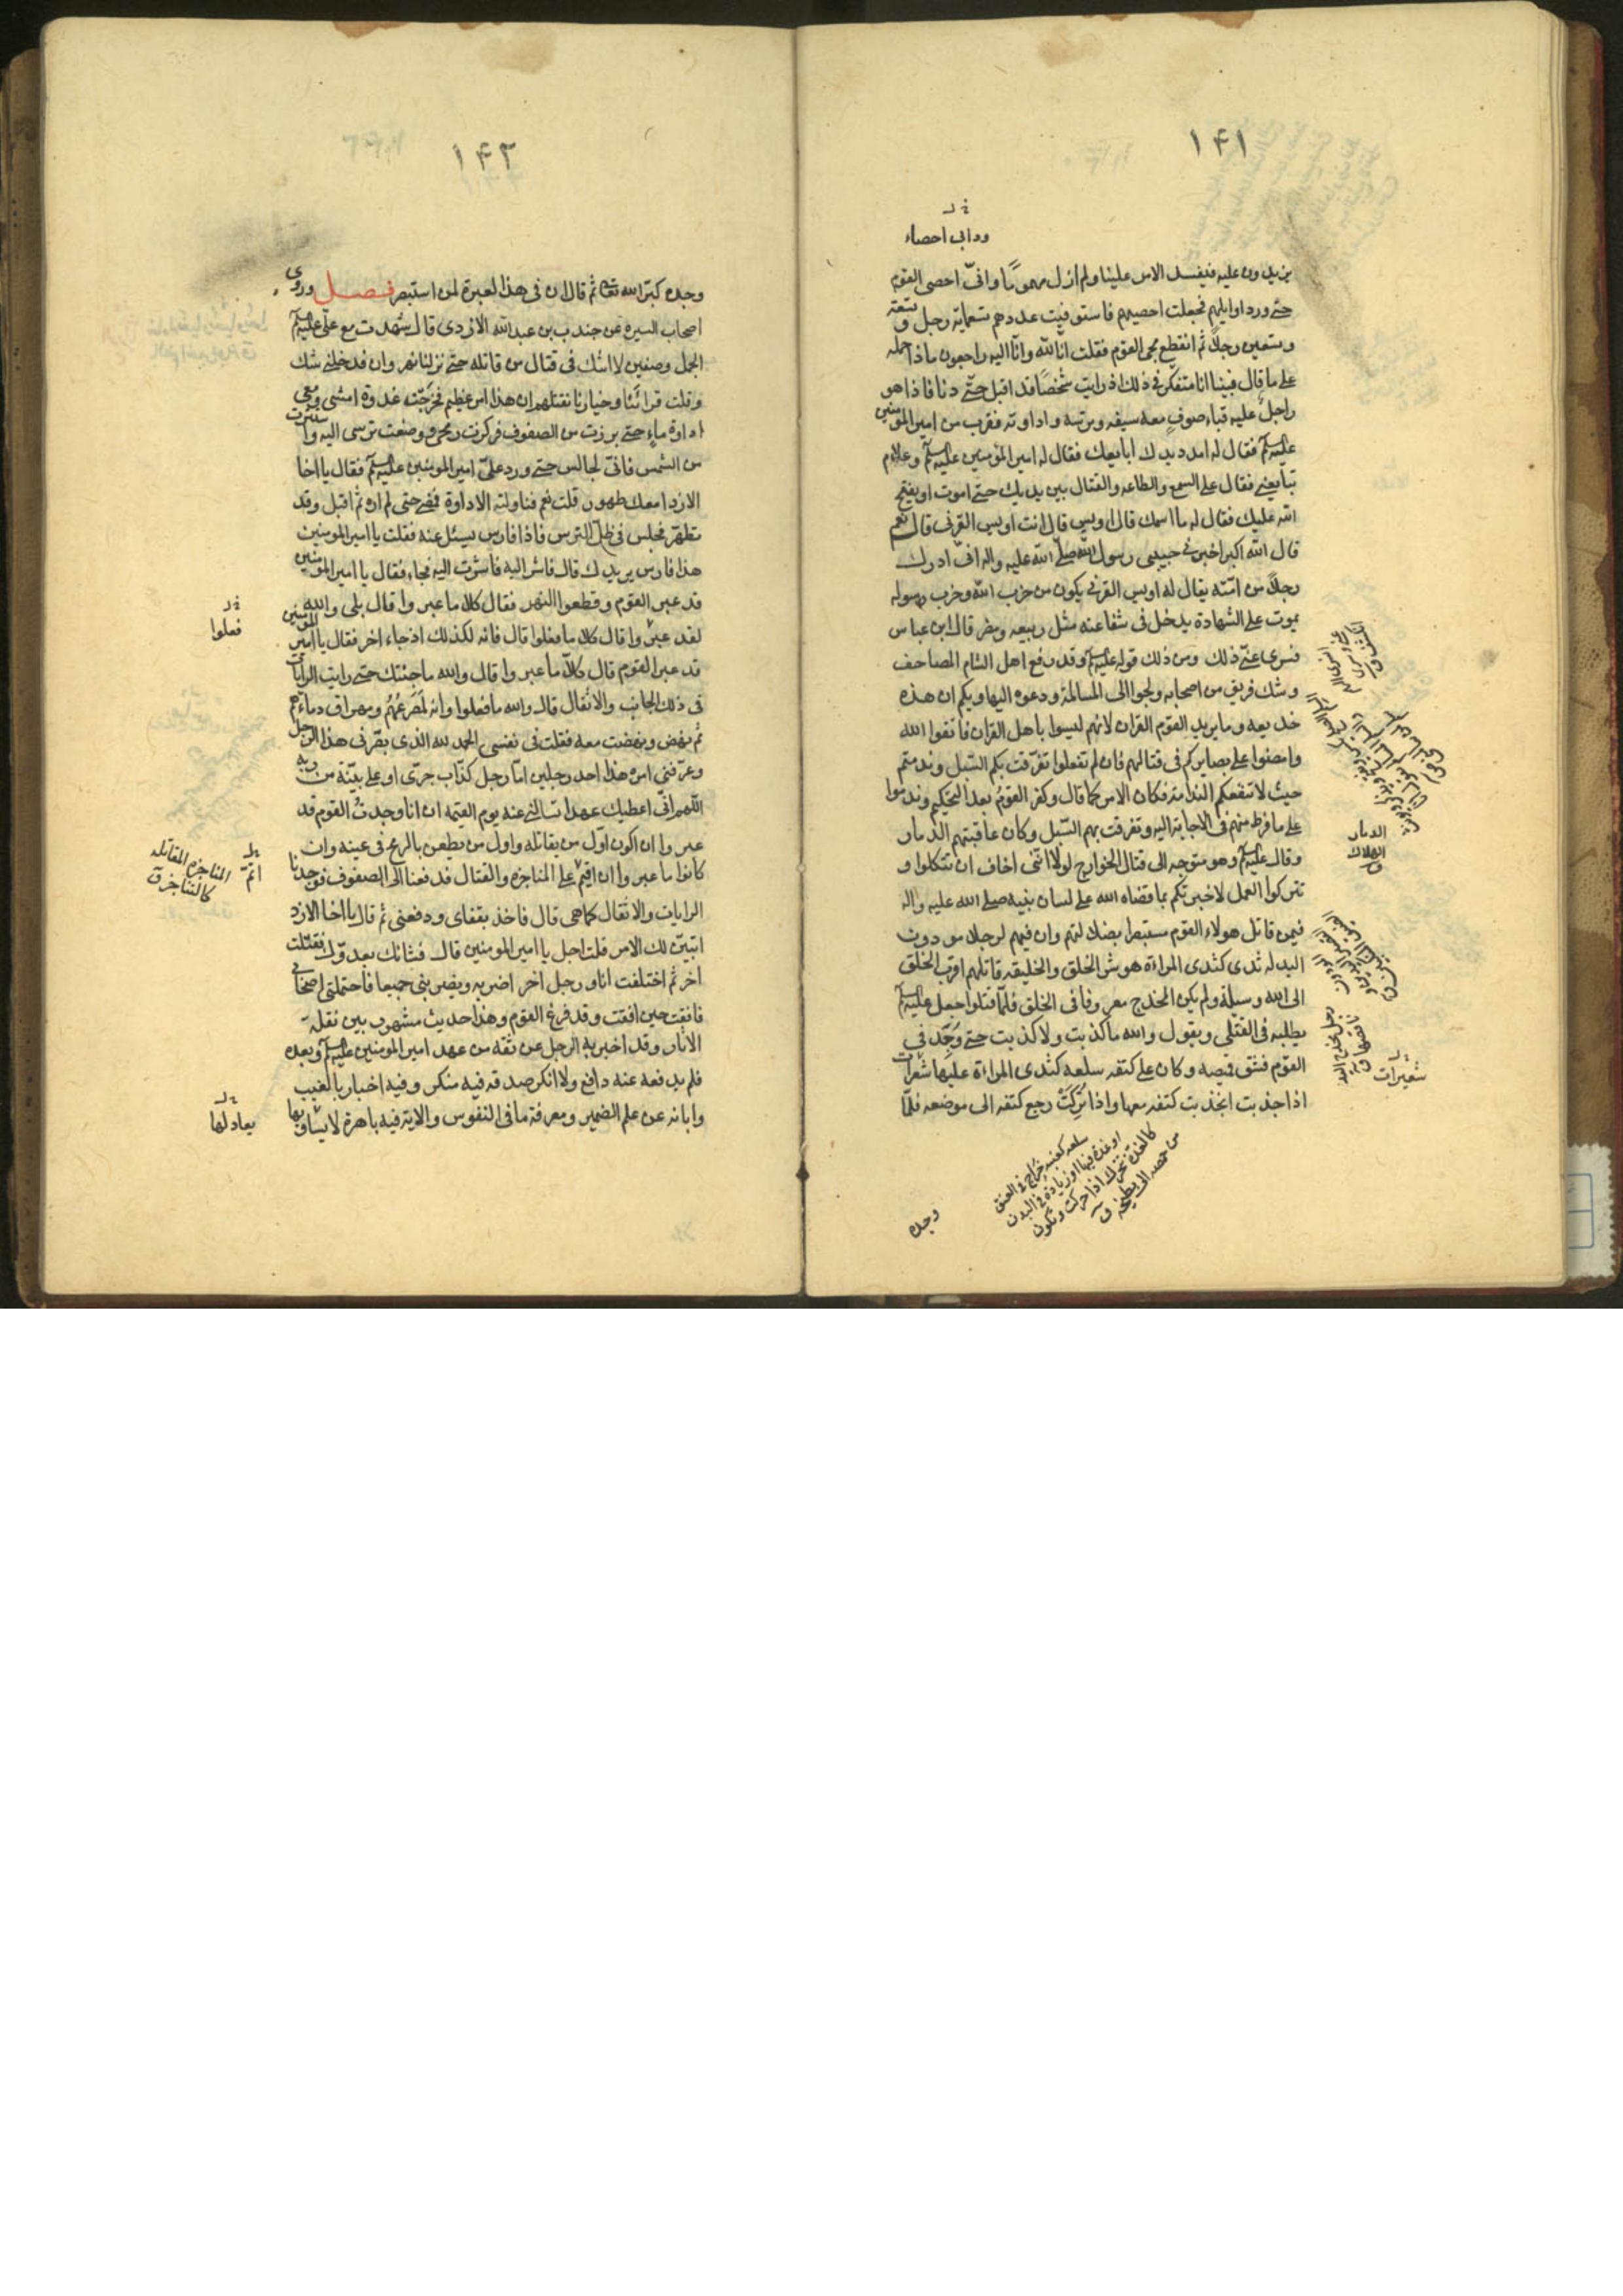 ١۴١
خ ل
ودابى احصاء
يزيدون عليه فيفسد الامر علينا ولم ازل مهموماً وانّى احصى القوم
حتى ورد اوايلهم فجعلت احصيهم فاستوفيت عددهم تسعمائة رجل وتسعة
وتسعين رجلاً ثم انقطع مجئ القوم فقلت انا لله وانا اليه راجعون ماذا حمله
على ما قال فبينا انا متفكر فى ذلك اذ رايت شخصاً قد اقبل حتّى دنا فاذا هو
راجل عليه قباء صوف معه سيفه وترسه واداوته فقرب من امير المؤمنين
عليه السلم فقال له امدد يدك ابايعك فقال له امير المؤمنين عليه السلم وعلام
تبايعنى فقال على السمع والطاعه والقتال بين يديك حتى اموت او يفتح
الله عليك فقال له ما اسمك قال اويس قال انت اويس القرنى قال نعم
قال الله اكبر اخبرنى حبيبى رسول الله صلى الله عليه واله انى ادرك
رجلاً من امته يقال له اويس القرنى يكون من حزب الله وحزب رسوله
يموت على الشهادة يدخل فى شفاعته مثل ربيعه ومضر قال ابن عباس
فسرى عنّى ذلك ومن ذلك قوله عليه السلم وقد رفع اهل الشام المصاحف
وشك فريق من اصحابه ولجوا الى المسالمة ودعوه اليها ويلكم ان هذه
خديعه وما يريد القوم القران لانهم ليسوا باهل القران فاتقوا الله
وامضوا على بصايركم فى قتالهم فان لم تفعلوا تفرّقت بكم السّبل وندمتم
حيث لا تنفعكم الندامة فكان الامر كما قال وكفر القوم بعد التحكيم وندموا
على ما فرط منهم فى الاجابة اليه وتفرقت بهم السّبل وكان عاقبتهم الدمار
وقال عليه السلم وهو متوجه الى قتال الخوارج لولا انّنى اخاف ان تتكلوا و
تتركوا العمل لاخبرتكم بما قضاه الله على لسان نبيه صلى الله عليه واله
فيمن قاتل هولاء القوم مستبصرا بضلالتهم وان فيهم لرجلا مودون
اليد له ثدى كثدى المراة هو شر الخلق والخليقه قاتلهم اقرب الخلق
الى الله وسيلة ولم يكن المخدج معروفا فى الخلق فلمّا قتلوا جعل عليه السلم
يطلبه فى القتلى ويقول والله ما كذبت ولا كذبت حتى وُجِد فى
القوم فشق قميصه وكان على كتفه سلعه كثدى المراة عليها شعرات
اذا جذبت انجذبت كتفه معها واذا تُرِكَتْ رجع كتفه الى موضعه فلمّا
الدمار
الهلاك
ق
شعيرات
سلعه كعنبه خراج فى العنق
او غدة فيها او زيادة فى البدن
كالغدة تتحرك اذا حركت وتكون
من حمصه الى بطيخه ق
وجده
١۴٢
وجده كبّر الله تعالى ثم قال ان فى هذا لعبرة لمن استبصر فصل وروى
اصحاب السيرة عن جندب بن عبدالله الازدى قال شهدت مع علىّ عليه السلم
الجمل وصفين لا اشك فى قتال من قاتله حتى نزلنا النهروان فدخلنى شك
وقلت قراؤنا وخيارنا نقتلهم ان هذا امر عظيم فخرجت غدوة امشى ومعى
اداوة ماء حتى برزت من الصفوف فركزت رمحى ووضعت ترسى اليه واستترت
من الشمس فانّى لجالس حتى ورد علىّ امير المومنين عليه السلم فقال يا اخا
الازد امعك طهور قلت نعم فناولته الاداوة فمضى حتى لم اره ثم اقبل وقد
تطهّر فجلس فى ظل الترس فاذا فارس يسئل عنه فقلت يا امير المومنين
هذا فارس يريدك قال فاشر اليه فاشرت اليه فجاء فقال يا امير المومنين
قد عبر القوم وقطعوا النهر فقال كلا ما عبروا قال بلى والله
لقد عبروا قال كلا ما فعلوا قال فانه لكذلك اذ جاء اخر فقال يا امير المومنين
قد عبر القوم قال كلاّ ما عبروا قال والله ما جئتك حتى رايت الرايات
فى ذلك الجانب والاثقال قال والله ما فعلوا وانه لمصرعهم ومهراق دمائهم
ثم نهض ونهضت معه فقلت فى نفسى الحمد لله الذى بصّرنى هذا الرجل
وعرّفنى امره هذا احد رجلين امّا رجل كذّاب جرّى او على بيّنة من ربه
اللهم انّى اعطيك عهدا تسالنى عنه يوم القيمة ان انا وجدتُ القوم قد
عبروا ان اكون اوّل من يقاتله واول من يطعن بالرمح فى عينه وان
كانوا ما عبروا ان اقيم على المناجزه والقتال فدفعنا الى الصفوف فوجدنا
الرايات والاثقال كما هى قال فاخذ بقفاى ودفعنى ثم قال يا اخا الازد
اتبيّن لك الامر قلت اجل يا امير المومنين قال فشانك بعدوّك فقتلت
اخر ثم اختلفت انا ورجل اخر اضربه ويضربنى جميعا فاحتملنى اصحابى
فافقت حين افقت وقد فرغ القوم وهذا حديث مشهور بين نقلة
الاثار وقد اخبر به الرجل عن نفسه من عهد امير المومنين عليه السلم وبعده
فلم يدفعه عنه دافع ولا انكر صدقه فيه منكر وفيه اخبار بالغيب
وابانه عن علم الضمير ومعرفة ما فى النفوس والاية فيه باهرة لا يساويها
خ ل
فعلوا
اتم
المناجزه المقاتله
كالتناجز ق
خ ل
يعادلها